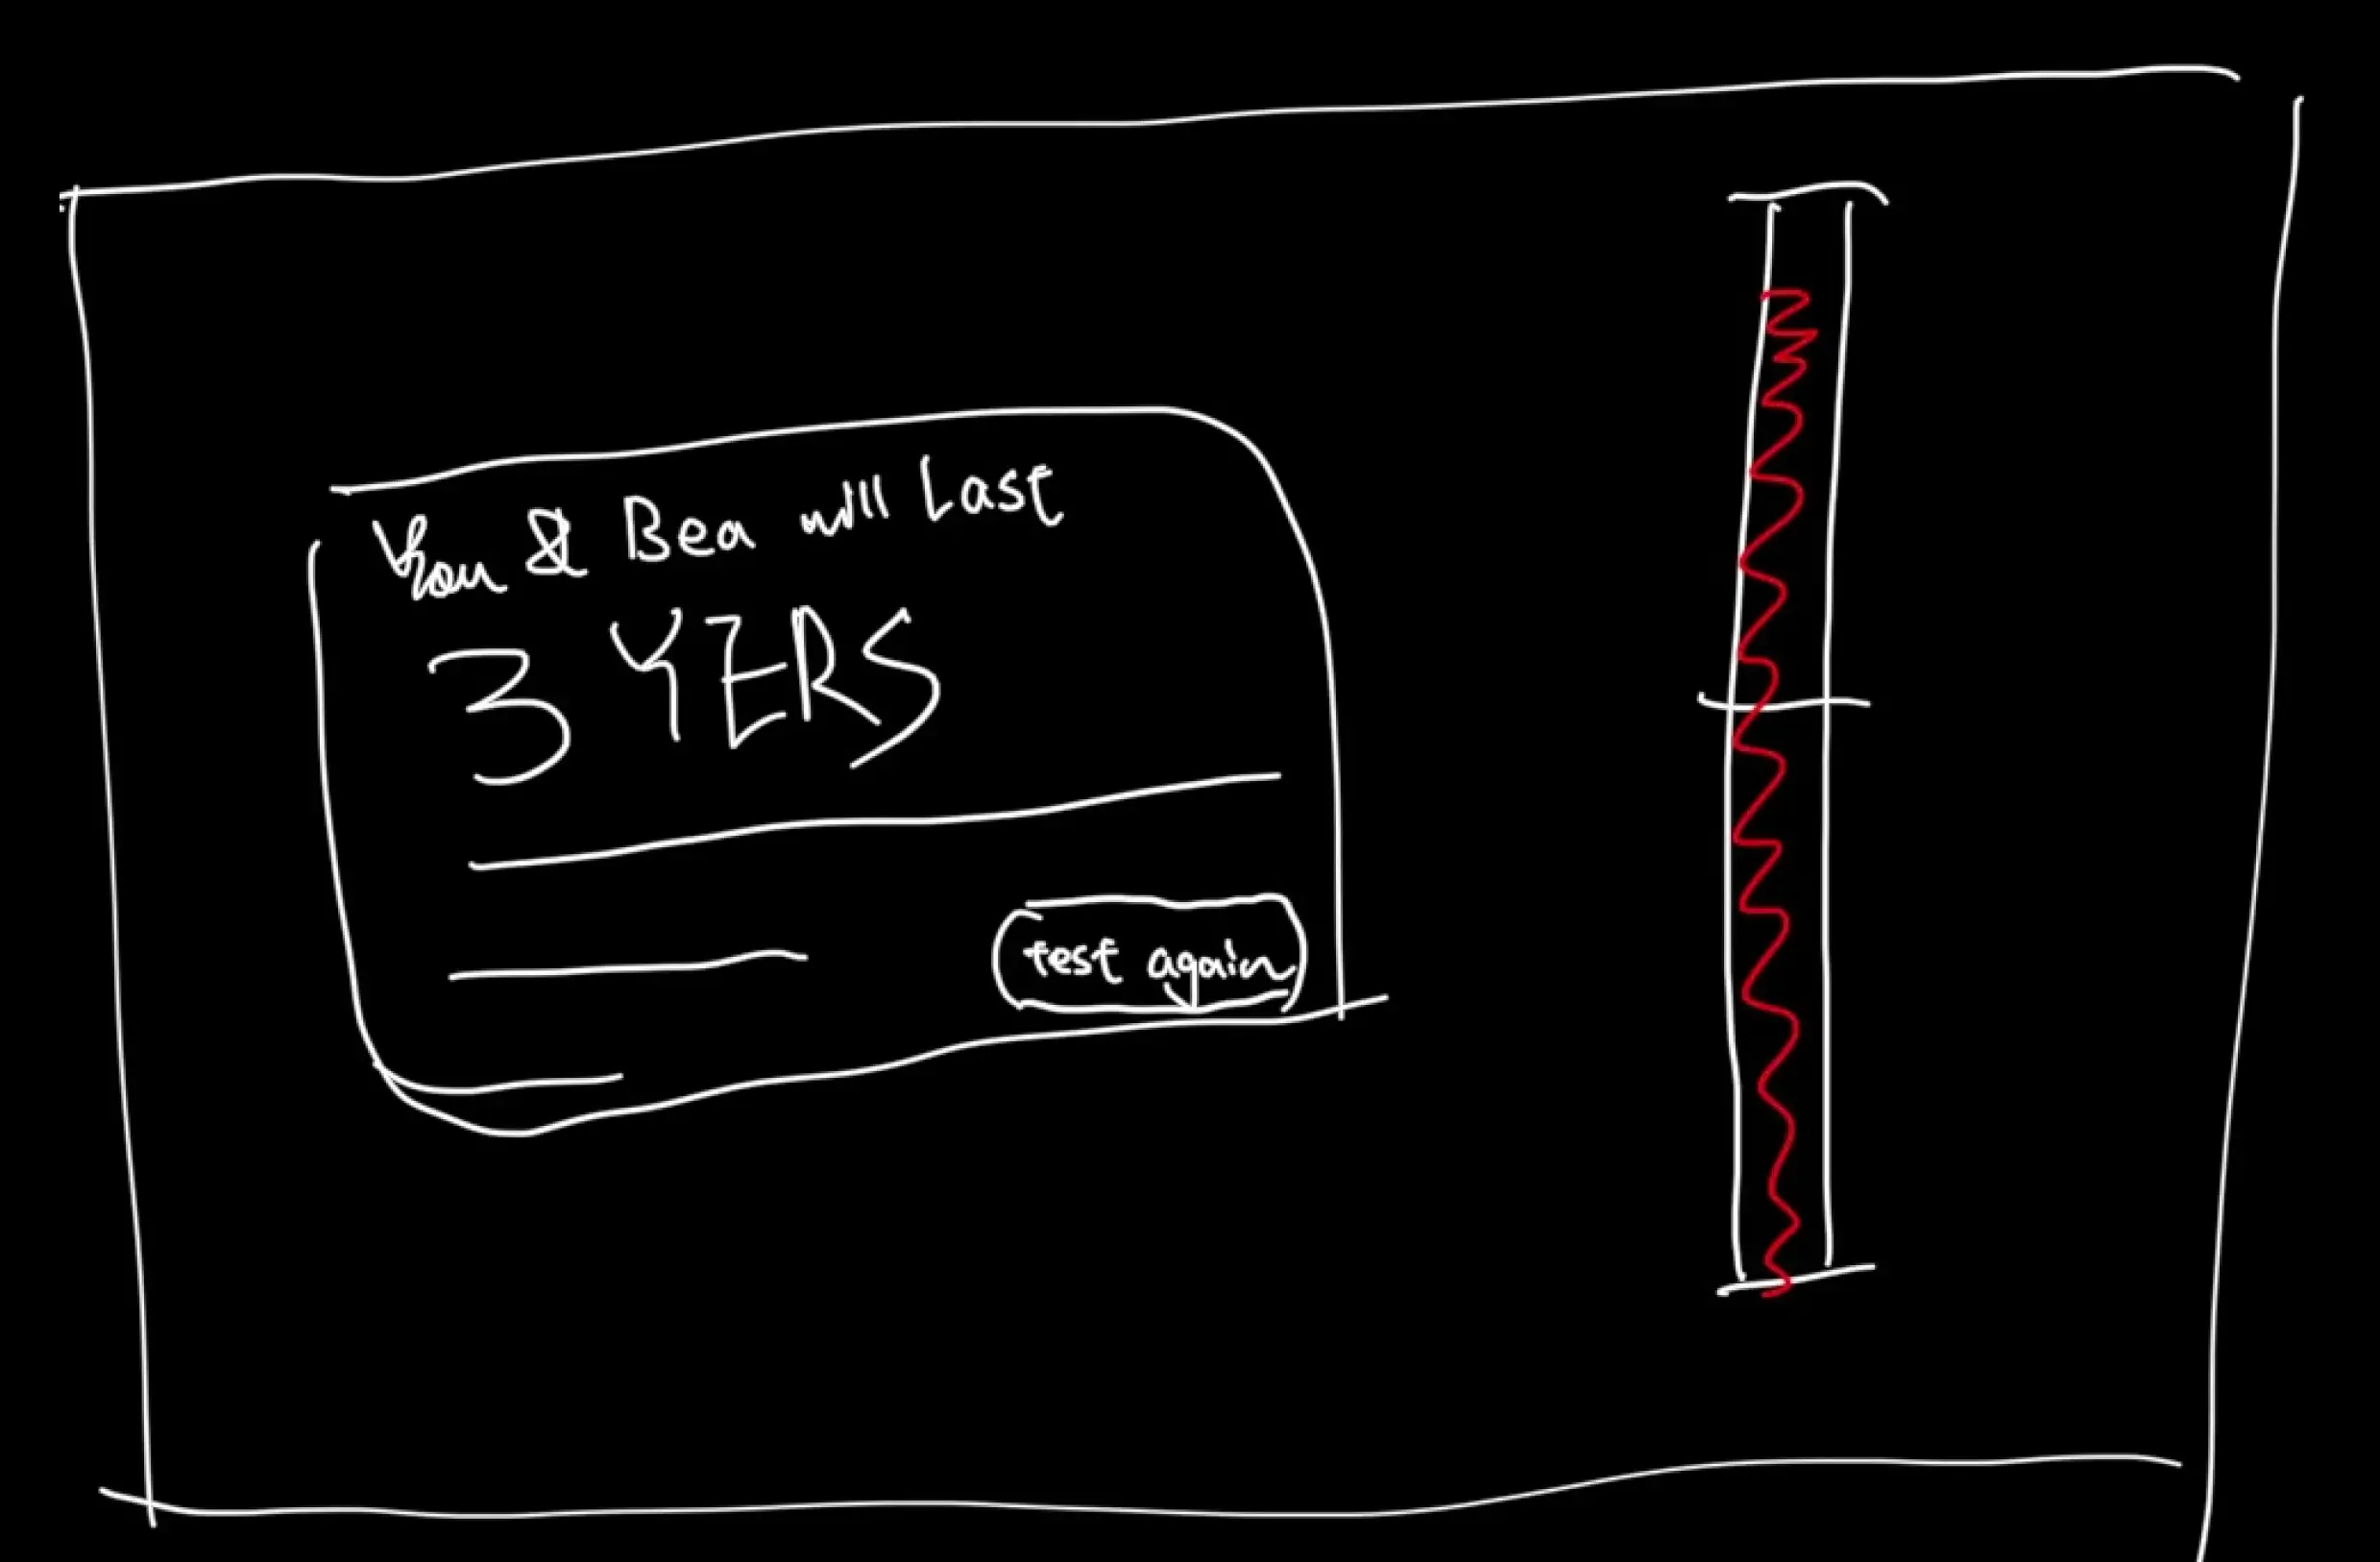 You & Bea will Last
3 YERS
test again